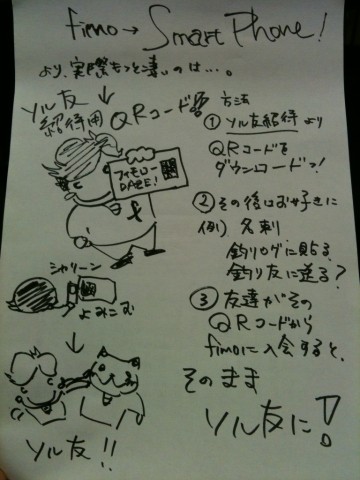 fimo→SmartPhone!
より、実際もっと凄いのは…。
ソル友
紹介用 QRコード
フィモロー
DAZE!
f
シャリーン
よみこむ
ソル友!!
方法
① ソル友招待より
QRコードを
ダウンロードっ!
② その後はお好きに
例) 名刺
釣りログに貼る、
釣り友に送る?
③ 友達がその
QRコードから
fimoに入会すると、
そのまま
ソル友に!